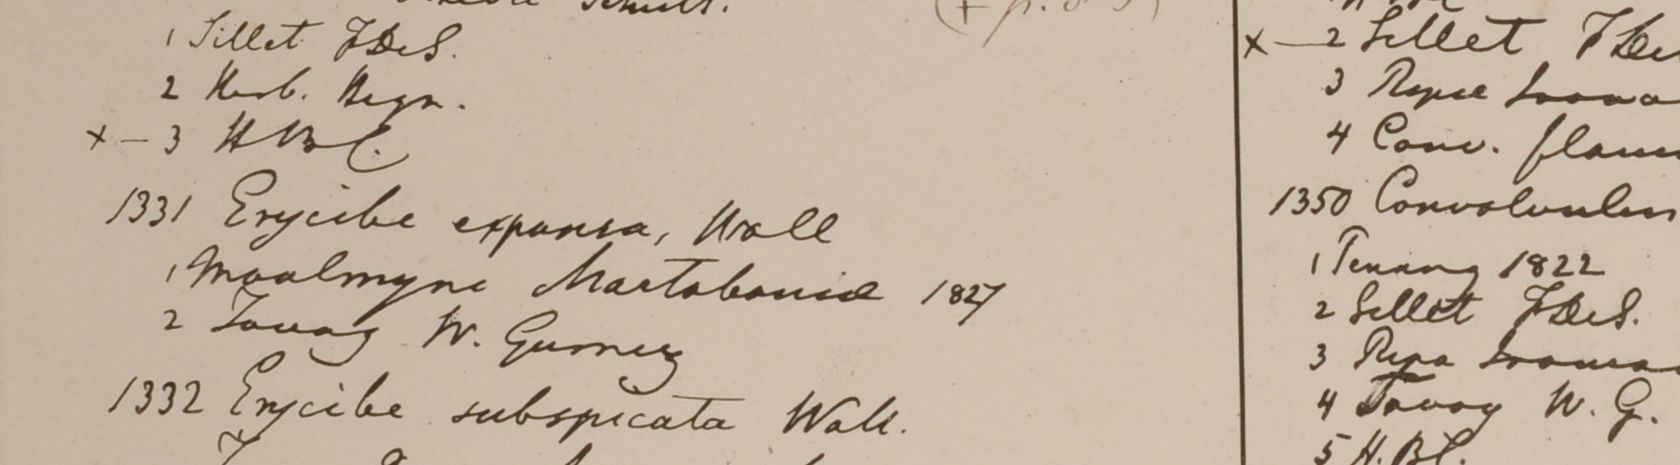 (+ p. 89)
1 Sillet FDeS.
2 Herb. Heyn.
x – 3 HBC.
1331 Erycibe expansa, Wall
1 Moalmyne Martabaniae 1827
2 Tavoy W. Gurney
1332 Erycibe subspicata Wall.
x – 2 Sillet FDe
3 Ripae
4 Conv.
1350 Convolvulus
1 Penang 1822
2 Sillet FDeS.
3 Ripa
4 Tavoy W. G.
5 H. BC.